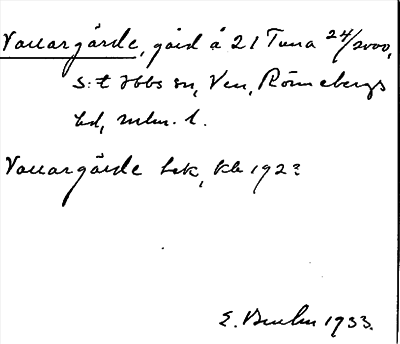 Vallargårde, gård å 21 Tuna 24/2000,
S:t Ibbs sn, Ven, Rönnebergs
hd, mlm. l.
Vallargårde bek, kb 1923
E. 1933.